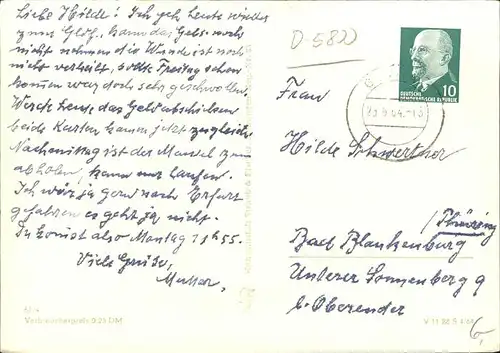 Liebe Hilde! Ich geh heute wieder
zum Chef, kann das Gebiss noch
nicht nehmen die Wunde ist noch
nicht verheilt, sollte Freitag schon
kommen war doch sehr geschwollen.
Werde heute das Geld abschicken
beide Karten kamen jetzt zugleich
Nachmittag ist der Mantel zum
abholen, kann nur laufen.
Ich wär ja gern nach Erfurt
gefahren es geht ja nicht.
Du kommst also Montag 11h55.
Viele Grüße,
Mutter,
Verbraucherpreis 0,25 DM
D 5822
DEUTSCHE
DEMOKRATISCHE REPUBLIK
10
Frau
Hilde Schwerther
/Thüring
Bad Blankenburg
Unterer Sonnenberg 9
b. Oberender